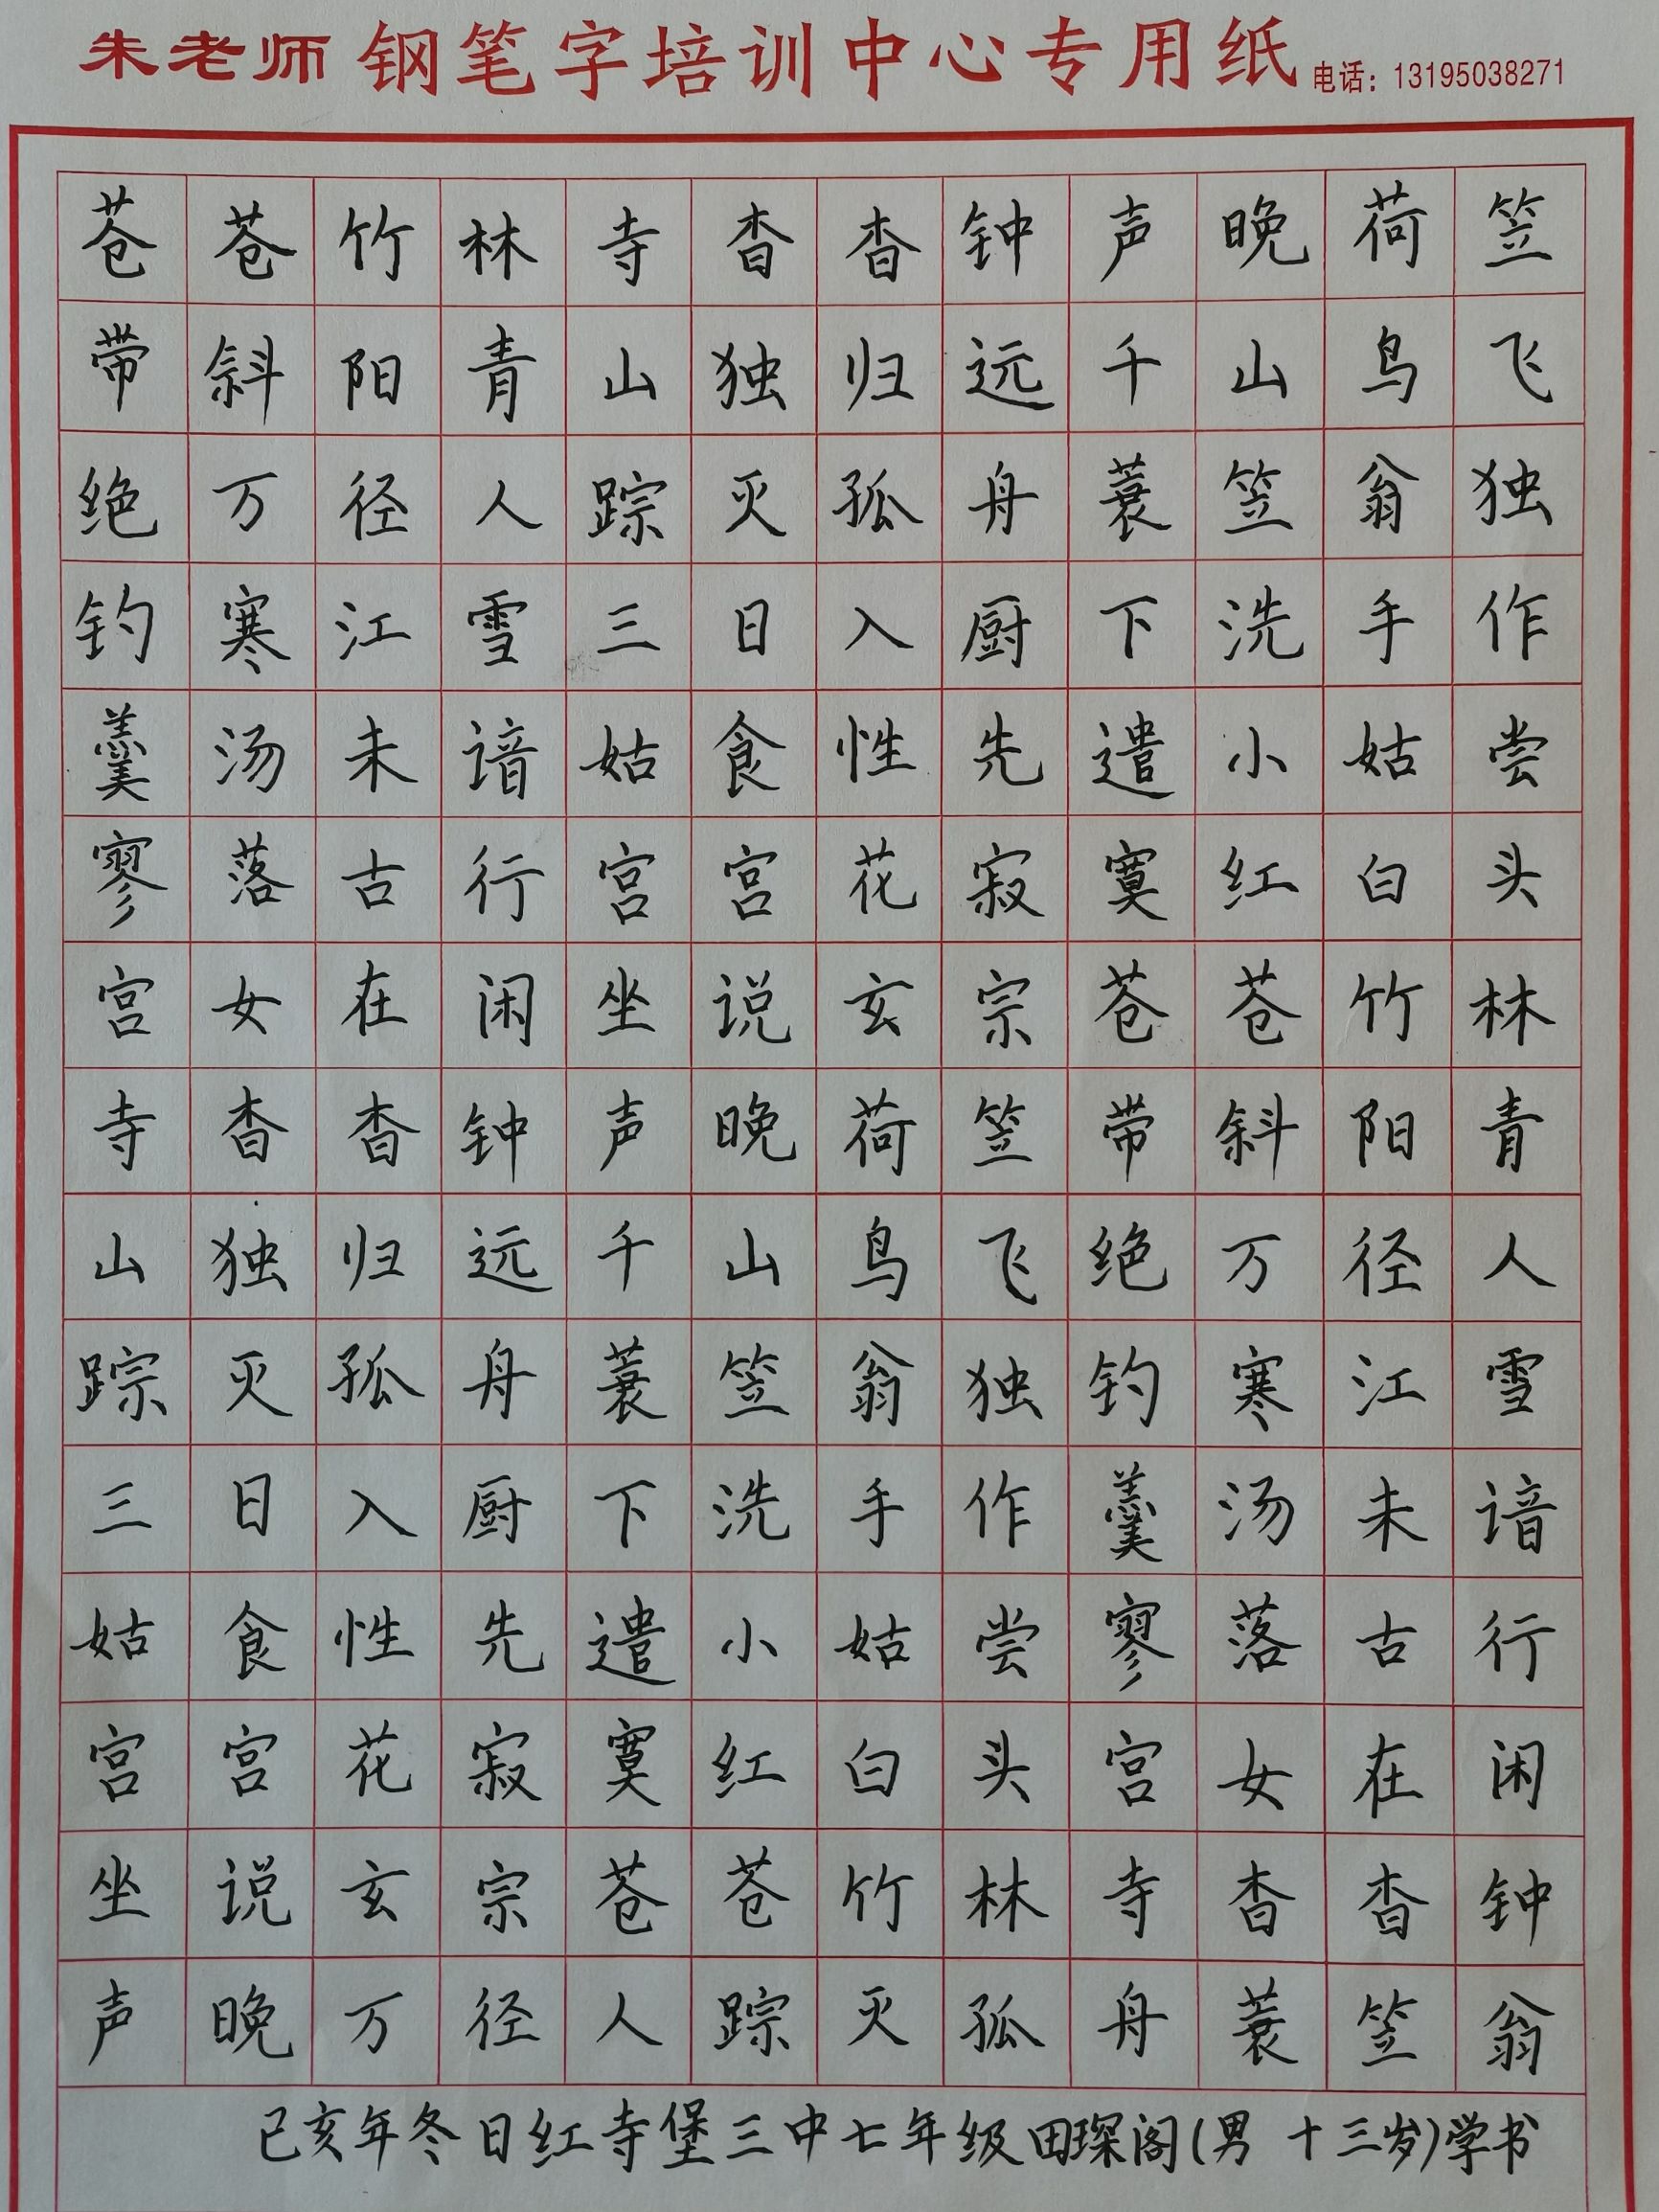 朱老师钢笔字培训中心专用纸 电话：13195038271
苍苍竹林寺杳杳钟声晚荷笠
带斜阳青山独归远千山鸟飞
绝万径人踪灭孤舟蓑笠翁独
钓寒江雪三日入厨下洗手作
羹汤未谙姑食性先遣小姑尝
寥落古行宫宫花寂寞红白头
宫女在闲坐说玄宗苍苍竹林
寺杳杳钟声晚荷笠带斜阳青
山独归远千山鸟飞绝万径人
踪灭孤舟蓑笠翁独钓寒江雪
三日入厨下洗手作羹汤未谙
姑食性先遣小姑尝寥落古行
宫宫花寂寞红白头宫女在闲
坐说玄宗苍苍竹林寺杳杳钟
声晚万径人踪灭孤舟蓑笠翁
己亥年冬日红寺堡三中七年级田琛阁(男 十三岁)学书